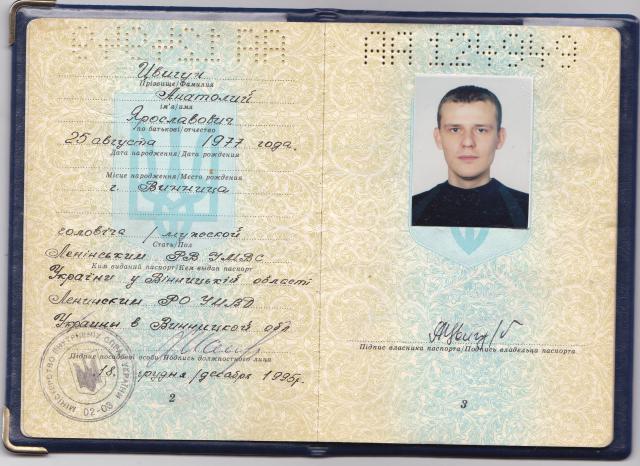 Цвигун
Прізвище/Фамилия
Анатолий
ім'я/имя
Ярославович
по батькові/отчество
25 августа 1977 года.
Дата народження/Дата рождения
Місце народження/Место рождения
г. Винница
чоловіча / мужской
Стать/Пол
Ленінським РВ УМВС
Ким виданий паспорт/Кем выдан паспорт
України у Вінницькій області
Ленинским РО УМВД
Украины в Винницкой обл
Підпис посадової особи/Подпись должностного лица
18 грудня/декабря 1995р.
МІНІСТЕРСТВО ВНУТРІШНІХ СПРАВ УКРАЇНИ
02-03
2
АА124949
Підпис власника паспорта/Подпись владельца паспорта
3